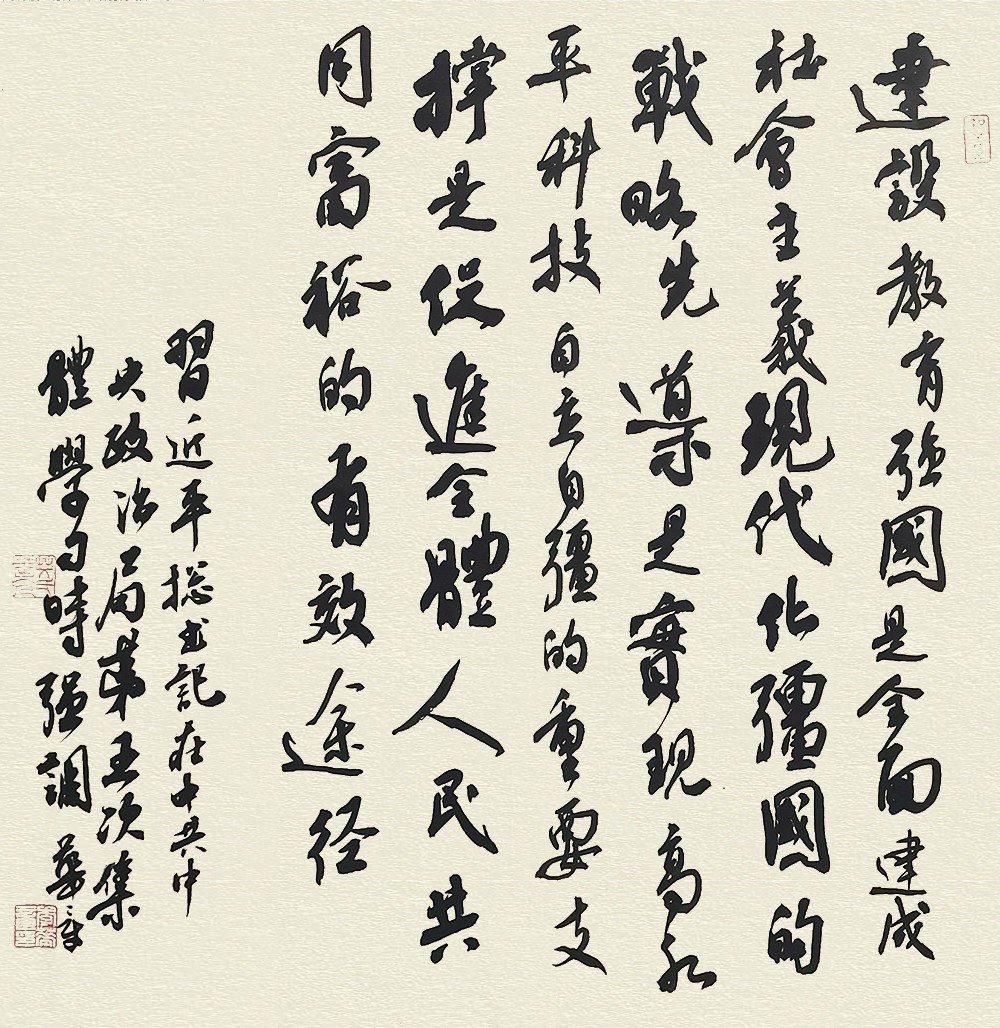 建設教育强國是全面建成
社會主義現代化彊國的
戰略先導是實現高水
平科技自立自彊的重要支
撑是促進全體人民共
同富裕的有效途径
習近平総书記在中共中
央政治局第五次集
體學习時强調